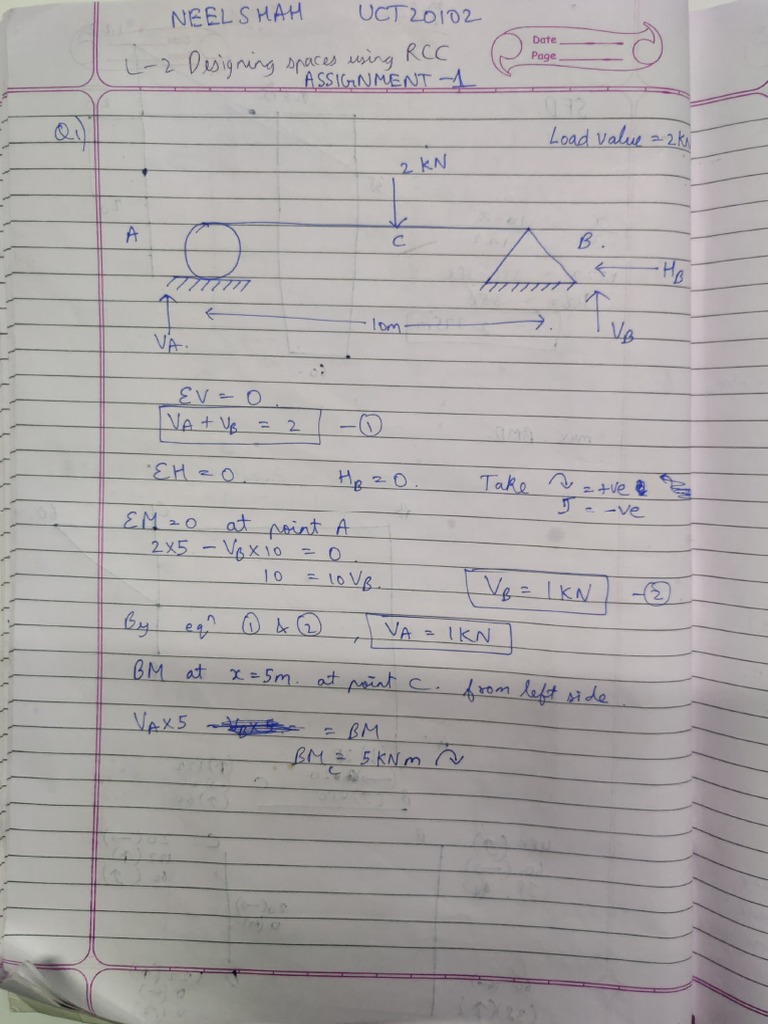 NEEL SHAH UCT20102
L-2 Designing spaces using RCC
ASSIGNMENT-1
Date
Page
Q1)
Load value = 2 KN
2 KN
A
C
B.
HB
10m
VA.
VB
ƐV = 0
VA + VB = 2 -①
ƐH = 0. HB = 0. Take ↷ = +ve
↺ = -ve
ƐM = 0 at point A
2×5 - VB×10 = 0
10 = 10VB. VB = 1KN -②
By eqn ① & ②, VA = 1KN
BM at x = 5m. at point C. from left side
VA×5 = BM
BMC = 5 KNm ↷